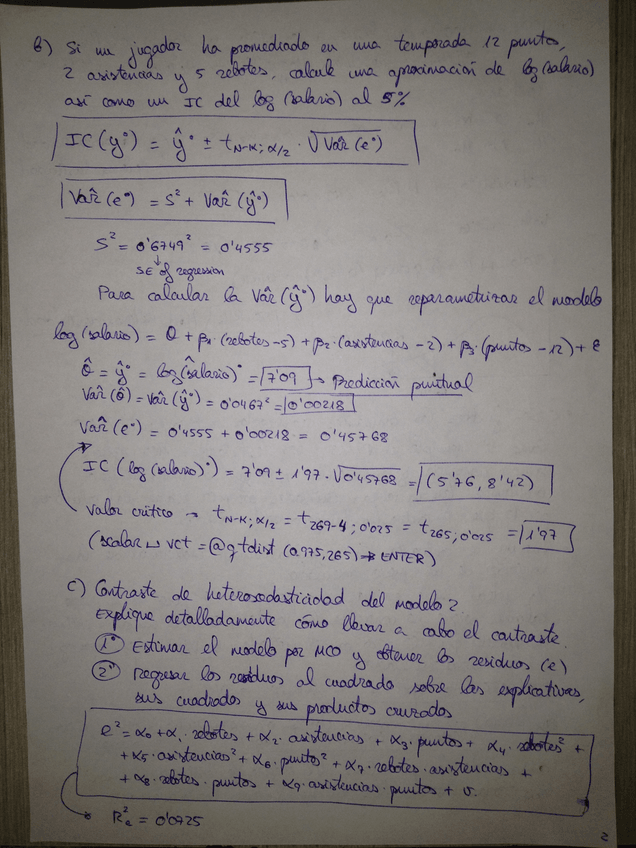 b) Si un jugador ha promediado en una temporada 12 puntos,
2 asistencias y 5 rebotes, calcule una aproximación de log(salario)
así como un IC del log(salario) al 5%
IC(y°) = ŷ° ± t_{N-K; α/2} · √Vâr(e°)
Vâr(e°) = S² + Vâr(ŷ°)
S² = 0'6749² = 0'4555
↓
SE of regression
Para calcular la Vâr(ŷ°) hay que reparametrizar el modelo
log(salario) = θ + β₁·(rebotes-5) + β₂·(asistencias-2) + β₃·(puntos-12) + e
θ̂ = ŷ° = log(salario)° = 7'09 → Predicción puntual
Vâr(θ̂) = Vâr(ŷ°) = 0'0467² = 0'00218
Vâr(e°) = 0'4555 + 0'00218 = 0'45768
IC(log(salario)°) = 7'09 ± 1'97 · √0'45768 = (5'76, 8'42)
Valor crítico → t_{N-K; α/2} = t_{269-4; 0'025} = t_{265; 0'025} = 1'97
(scalar ␣ vct = @qtdist(0.975,265) → ENTER)
c) Contraste de heterocedasticidad del modelo 2.
Explique detalladamente cómo llevar a cabo el contraste.
1º Estimar el modelo por MCO y obtener los residuos (e)
2º regresar los residuos al cuadrado sobre las explicativas,
sus cuadrados y sus productos cruzados
e² = α₀ + α₁·rebotes + α₂·asistencias + α₃·puntos + α₄·rebotes² +
+ α₅·asistencias² + α₆·puntos² + α₇·rebotes·asistencias +
+ α₈·rebotes·puntos + α₉·asistencias·puntos + v
R²ₑ = 0'0725
2